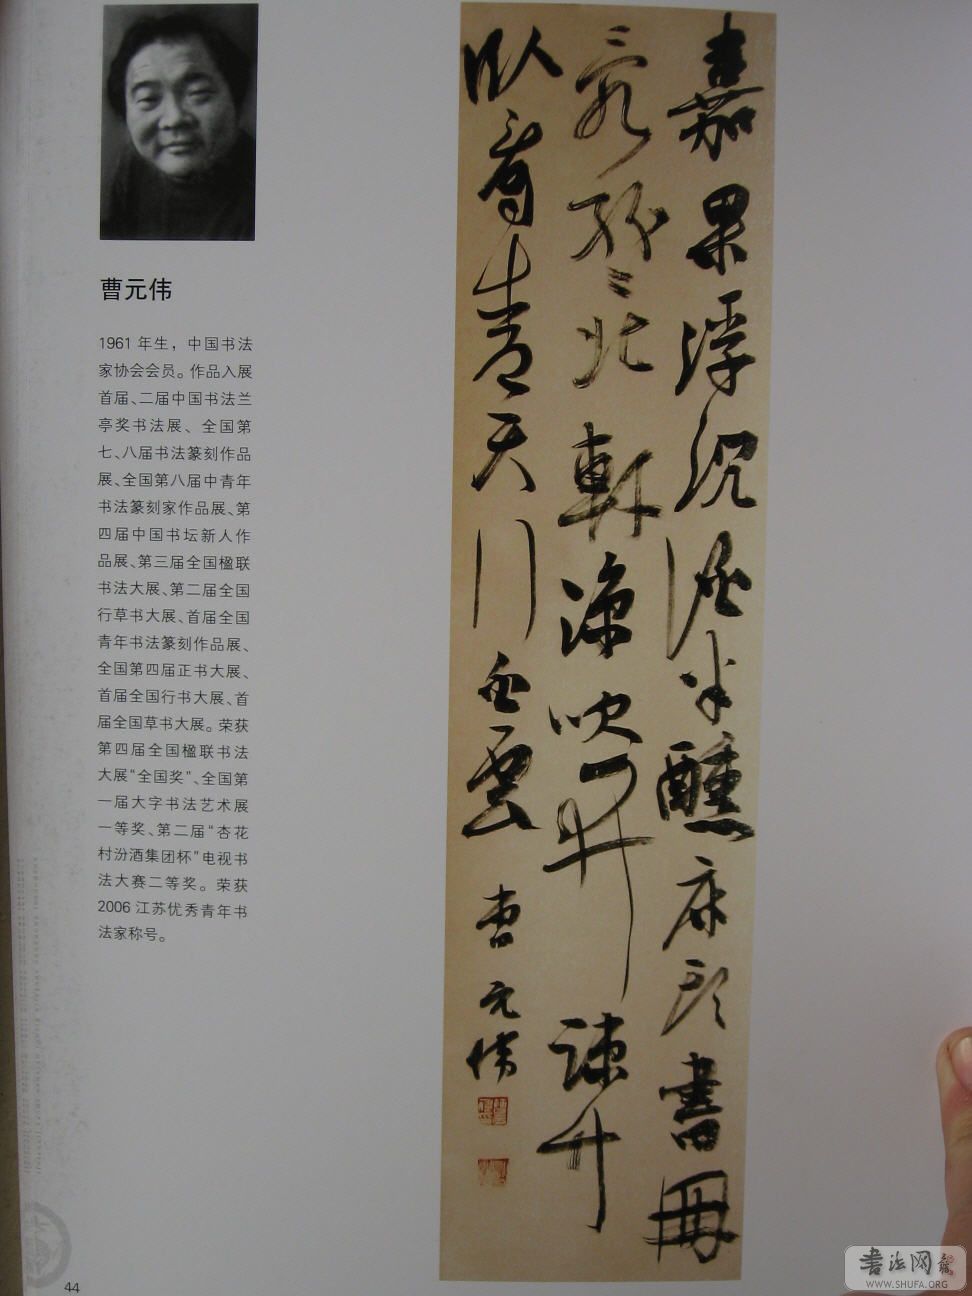 曹元伟
1961 年生，中国书法
家协会会员。作品入展
首届、二届中国书法兰
亭奖书法展、全国第
七、八届书法篆刻作品
展、全国第八届中青年
书法篆刻家作品展、第
四届中国书坛新人作
品展、第三届全国楹联
书法大展、第二届全国
行草书大展、首届全国
青年书法篆刻作品展、
全国第四届正书大展、
首届全国行书大展、首
届全国草书大展。荣获
第四届全国楹联书法
大展“全国奖”、全国第
一届大字书法艺术展
一等奖、第二届“杏花
村汾酒集团杯”电视书
法大赛二等奖。荣获
2006 江苏优秀青年书
法家称号。
嘉果浮沉酒半醺床头書冊
亂紛〻北軒涼吹開疎竹
臥看青天行白雲 曹元偉
44
书法网
WWW.SHUFA.ORG